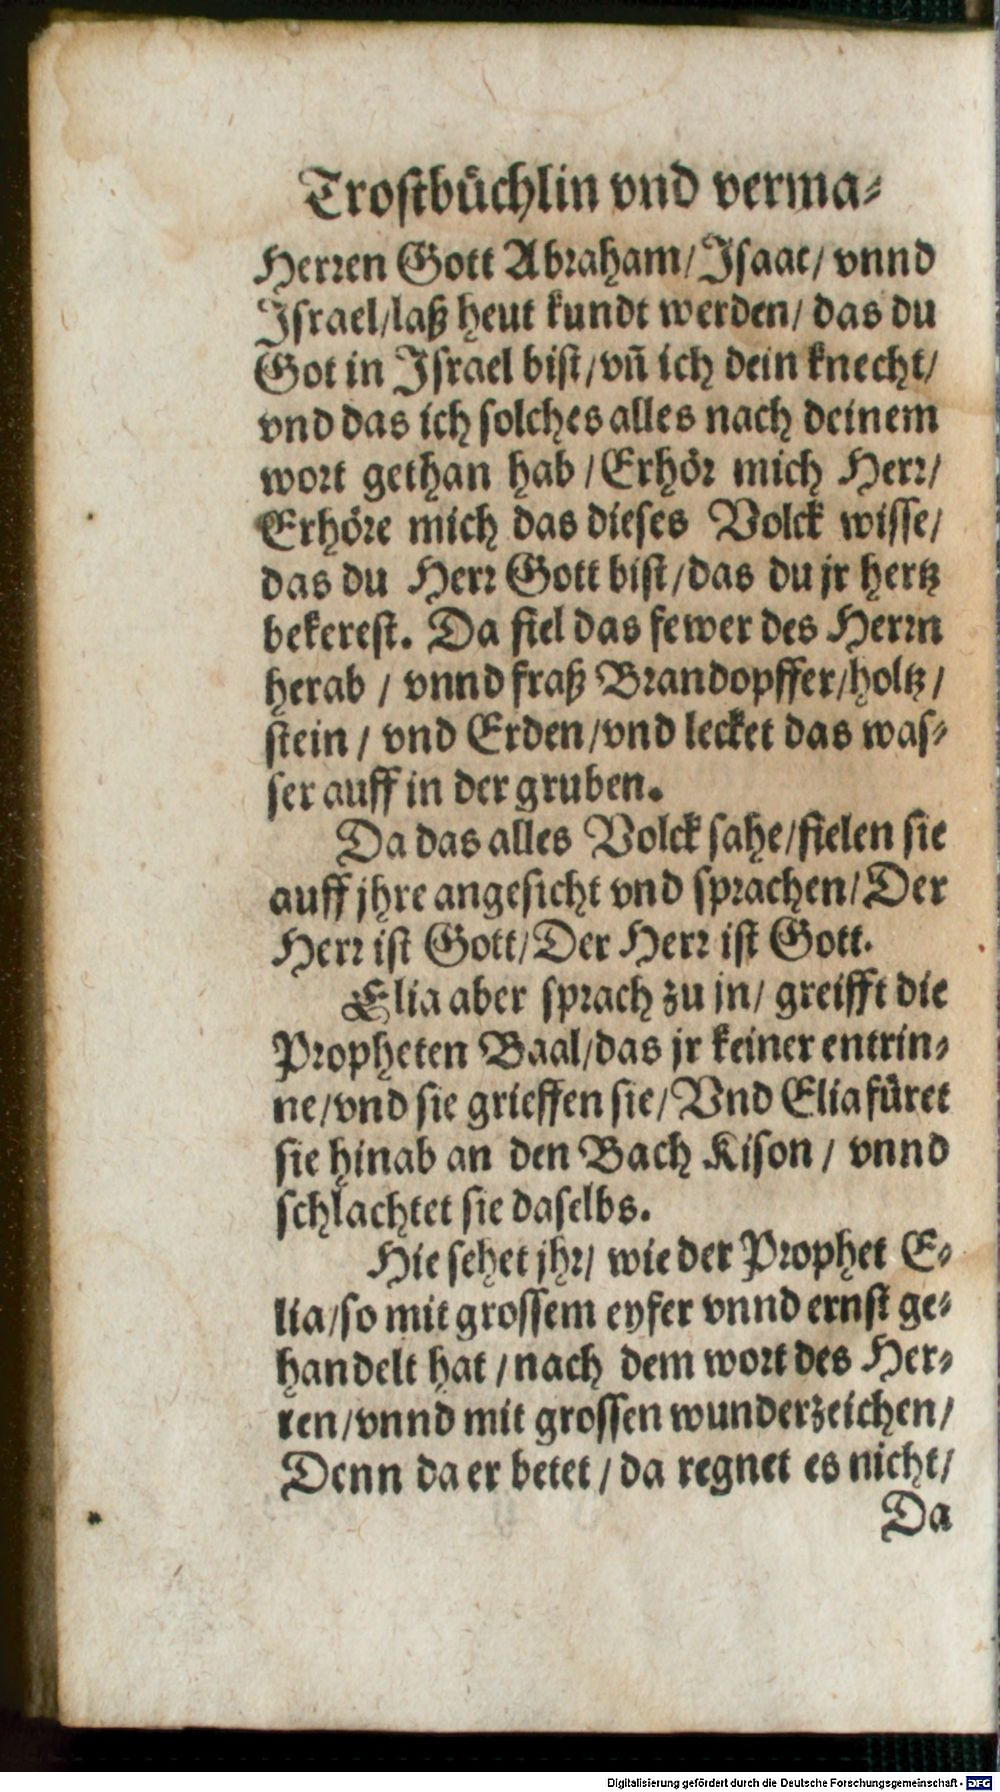 Trostbüchlin vnd verma-
Herren Gott Abraham/Isaac/ vnnd
Israel/laß heut kundt werden/ das du
Got in Israel bist/vn̄ ich dein knecht/
vnd das ich solches alles nach deinem
wort gethan hab/Erhör mich Herr/
Erhöre mich das dieses Volck wisse/
das du Herr Gott bist/das du jr hertz
bekerest. Da fiel das fewer des Herrn
herab / vnnd fraß Brandopffer/holtz/
stein / vnd Erden/vnd lecket das was-
ser auff in der gruben.
Da das alles Volck sahe/fielen sie
auff jhre angesicht vnd sprachen/Der
Herr ist Gott/Der Herr ist Gott.
Elia aber sprach zu jn/ greifft die
Propheten Baal/das jr keiner entrin-
ne/vnd sie grieffen sie/Vnd Elia füret
sie hinab an den Bach Kison / vnnd
schlachtet sie daselbs.
Hie sehet jhr/ wie der Prophet E-
lia/so mit grossem eyfer vnnd ernst ge-
handelt hat /nach dem wort des Her-
ren/vnnd mit grossen wunderzeichen/
Denn da er betet / da regnet es nicht/
Da
Digitalisierung gefördert durch die Deutsche Forschungsgemeinschaft - DFG